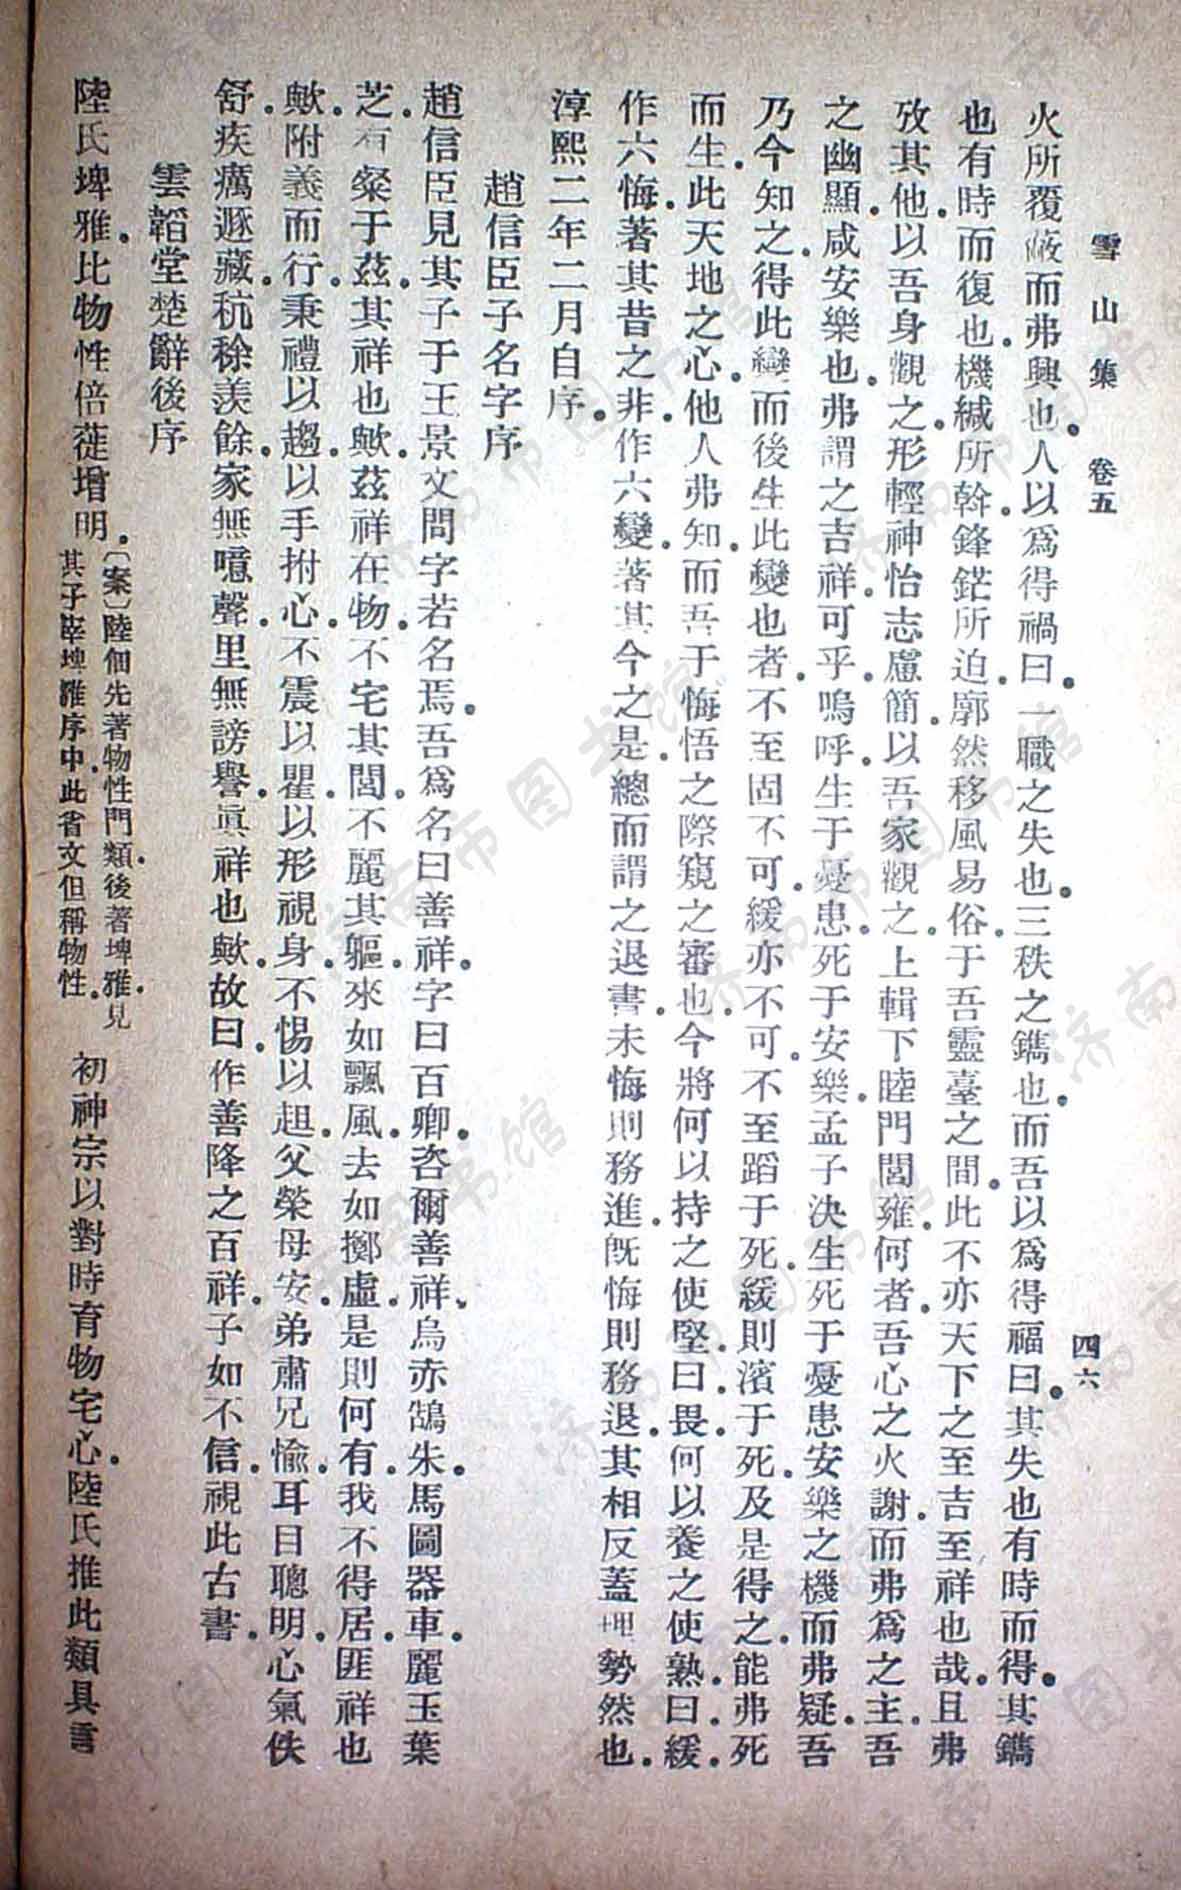 雪山集 卷五 四六
火所覆蔽而弗興也。人以爲得禍曰。一職之失也。三秩之鐫也。而吾以爲得福曰。其失也有時而得。其鐫
也有時而復也。機緘所斡。鋒鋩所迫。廓然移風易俗。于吾靈臺之間。此不亦天下之至吉至祥也哉。且弗
攷其他。以吾身觀之。形輕神怡志慮簡。以吾家觀之。上輯下睦門閭雍。何者。吾心之火謝。而弗爲之主。吾
之幽顯。咸安樂也。弗謂之吉祥。可乎。嗚呼。生于憂患。死于安樂。孟子決生死于憂患安樂之機而弗疑。吾
乃今知之。得此變而後生此變也者。不至固不可。緩亦不可。不至蹈于死。緩則濱于死。及是得之。能弗死
而生。此天地之心。他人弗知。而吾于悔悟之際窺之審也。今將何以持之使堅。曰畏。何以養之使熟。曰緩。
作六悔。著其昔之非。作六變。著其今之是。總而謂之退書。未悔則務進。旣悔則務退。其相反蓋理勢然也。
淳熙二年二月自序。
趙信臣子名字序
趙信臣見其子于王景文問字若名焉。吾爲名曰善祥。字曰百卿。咨爾善祥、烏赤鵠朱。馬圖器車。麗玉葉
芝。有粲于茲。其祥也歟。茲祥在物。不宅其閭。不麗其軀。來如飄風。去如擲虛。是則何有。我不得居。匪祥也
歟。附義而行。秉禮以趨。以手拊心。不震以瞿。以形視身。不惕以趄。父榮母安。弟肅兄愉。耳目聰明。心氣佚
舒。疾癘遯藏。秔稌羨餘。家無噫聲。里無謗譽。眞祥也歟。故曰。作善降之百祥。子如不信。視此古書。
雲韜堂楚辭後序
陸氏埤雅。比物性倍蓰增明。〔案〕陸佃先著物性門類。後著埤雅。見其子宰埤雅序中。此省文但稱物性。 初神宗以對時育物宅心。陸氏推此類具言